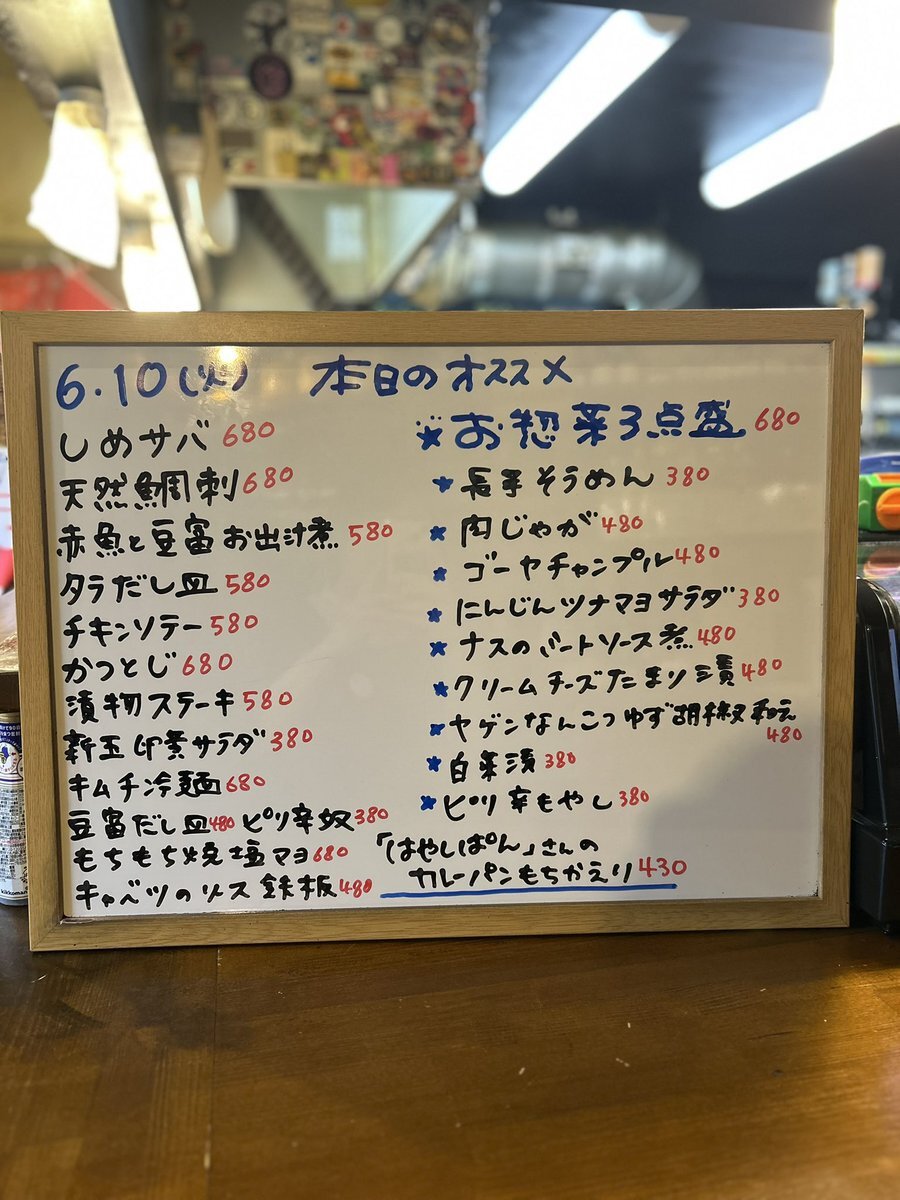 6.10(火) 本日のオススメ
しめサバ 680
天然鯛刺 680
赤魚と豆富お出汁煮 580
タラだし皿 580
チキンソテー 580
かつとじ 680
漬物ステーキ 580
新玉卵黄サラダ 380
キムチ冷麺 680
豆富だし皿 480 ピリ辛奴 380
もちもち焼塩マヨ 680
キャベツのソース鉄板 480
★お惣菜3点盛 680
★長芋そうめん 380
★肉じゃが 480
★ゴーヤチャンプル 480
★にんじんツナマヨサラダ 380
★ナスのミートソース煮 480
★クリームチーズたまり漬 480
★ヤゲンなんこつゆず胡椒和え
480
★白菜漬 380
★ピリ辛もやし 380
「はやしぱん」さんの
カレーパンもちかえり 430
kikkoman